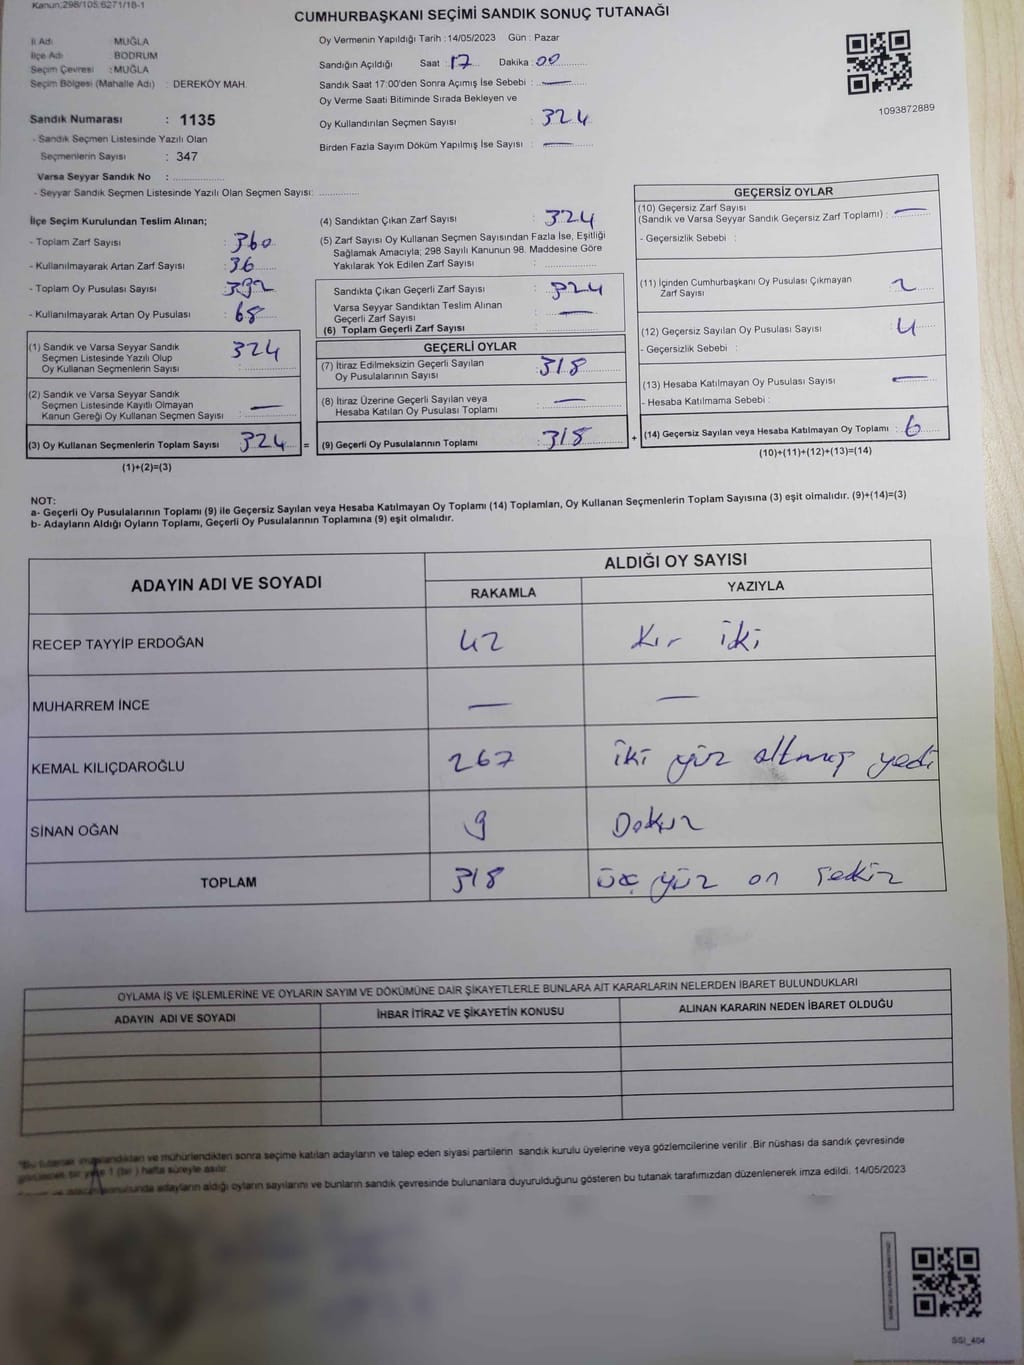 Kanun:298/105;6271/18-1
CUMHURBAŞKANI SEÇİMİ SANDIK SONUÇ TUTANAĞI
İl Adı : MUĞLA
İlçe Adı : BODRUM
Seçim Çevresi : MUĞLA
Seçim Bölgesi (Mahalle Adı) : DEREKÖY MAH.
Sandık Numarası : 1135
- Sandık Seçmen Listesinde Yazılı Olan
Seçmenlerin Sayısı : 347
Varsa Seyyar Sandık No :
- Seyyar Sandık Seçmen Listesinde Yazılı Olan Seçmen Sayısı:
Oy Vermenin Yapıldığı Tarih : 14/05/2023 Gün : Pazar
Sandığın Açıldığı Saat : 17 Dakika : 00
Sandık Saat 17:00'den Sonra Açımış İse Sebebi : —
Oy Verme Saati Bitiminde Sırada Bekleyen ve
Oy Kullandırılan Seçmen Sayısı : 324
Birden Fazla Sayım Döküm Yapılmış İse Sayısı : —
1093872889
İlçe Seçim Kurulundan Teslim Alınan;
- Toplam Zarf Sayısı : 360
- Kullanılmayarak Artan Zarf Sayısı : 36
- Toplam Oy Pusulası Sayısı : 392
- Kullanılmayarak Artan Oy Pusulası : 68
(1) Sandık ve Varsa Seyyar Sandık
Seçmen Listesinde Yazılı Olup
Oy Kullanan Seçmenlerin Sayısı : 324
(2) Sandık ve Varsa Seyyar Sandık
Seçmen Listesinde Kayıtlı Olmayan
Kanun Gereği Oy Kullanan Seçmen Sayısı : —
(3) Oy Kullanan Seçmenlerin Toplam Sayısı : 324 =
(1)+(2)=(3)
(4) Sandıktan Çıkan Zarf Sayısı : 324
(5) Zarf Sayısı Oy Kullanan Seçmen Sayısından Fazla İse, Eşitliği
Sağlamak Amacıyla; 298 Sayılı Kanunun 98. Maddesine Göre
Yakılarak Yok Edilen Zarf Sayısı :
Sandıkta Çıkan Geçerli Zarf Sayısı : 324
Varsa Seyyar Sandıktan Teslim Alınan
Geçerli Zarf Sayısı : —
(6) Toplam Geçerli Zarf Sayısı :
GEÇERLİ OYLAR
(7) İtiraz Edilmeksizin Geçerli Sayılan
Oy Pusulalarının Sayısı : 318
(8) İtiraz Üzerine Geçerli Sayılan veya
Hesaba Katılan Oy Pusulası Toplamı : —
(9) Geçerli Oy Pusulalarının Toplamı : 318 +
GEÇERSİZ OYLAR
(10) Geçersiz Zarf Sayısı
(Sandık ve Varsa Seyyar Sandık Geçersiz Zarf Toplamı) : —
- Geçersizlik Sebebi :
(11) İçinden Cumhurbaşkanı Oy Pusulası Çıkmayan
Zarf Sayısı : 2
(12) Geçersiz Sayılan Oy Pusulası Sayısı : 4
- Geçersizlik Sebebi :
(13) Hesaba Katılmayan Oy Pusulası Sayısı : —
- Hesaba Katılmama Sebebi :
(14) Geçersiz Sayılan veya Hesaba Katılmayan Oy Toplamı : 6
(10)+(11)+(12)+(13)=(14)
NOT:
a- Geçerli Oy Pusulalarının Toplamı (9) ile Geçersiz Sayılan veya Hesaba Katılmayan Oy Toplamı (14) Toplamları, Oy Kullanan Seçmenlerin Toplam Sayısına (3) eşit olmalıdır. (9)+(14)=(3)
b- Adayların Aldığı Oyların Toplamı, Geçerli Oy Pusulalarının Toplamına (9) eşit olmalıdır.
ADAYIN ADI VE SOYADI
ALDIĞI OY SAYISI
RAKAMLA YAZIYLA
RECEP TAYYİP ERDOĞAN 42 Kır iki
MUHARREM İNCE — —
KEMAL KILIÇDAROĞLU 267 iki yüz altmış yedi
SİNAN OĞAN 9 Dokuz
TOPLAM 318 üç yüz on sekiz
OYLAMA İŞ VE İŞLEMLERİNE VE OYLARIN SAYIM VE DÖKÜMÜNE DAİR ŞİKAYETLERLE BUNLARA AİT KARARLARIN NELERDEN İBARET BULUNDUKLARI
ADAYIN ADI VE SOYADI İHBAR İTİRAZ VE ŞİKAYETİN KONUSU ALINAN KARARIN NEDEN İBARET OLDUĞU
*Bu tutanak imzalandıktan ve mühürlendikten sonra seçime katılan adayların ve talep eden siyasi partilerin sandık kurulu üyelerine veya gözlemcilerine verilir .Bir nüshası da sandık çevresinde
görülecek bir yere 1 (bir ) hafta süreyle asılır.
sonucunda adayların aldığı oyların sayılarını ve bunların sandık çevresinde bulunanlara duyurulduğunu gösteren bu tutanak tarafımızdan düzenlenerek imza edildi. 14/05/2023
SSI_404